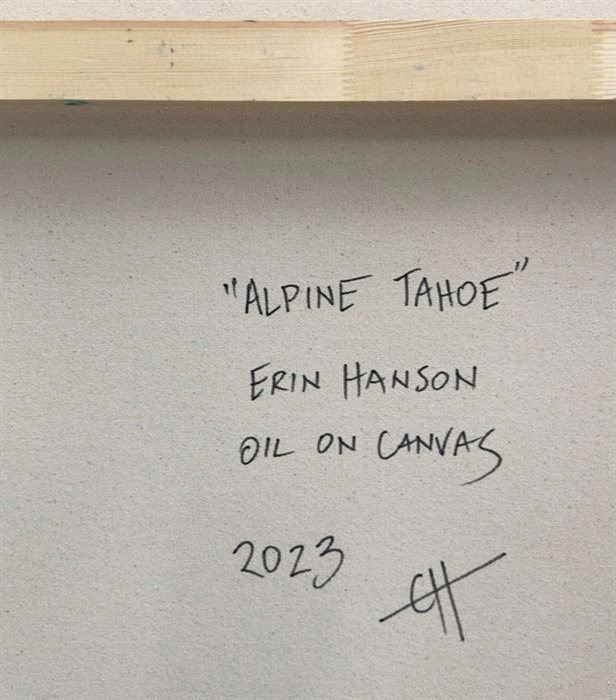 "ALPINE TAHOE"
ERIN HANSON
OIL ON CANVAS
2023
EH